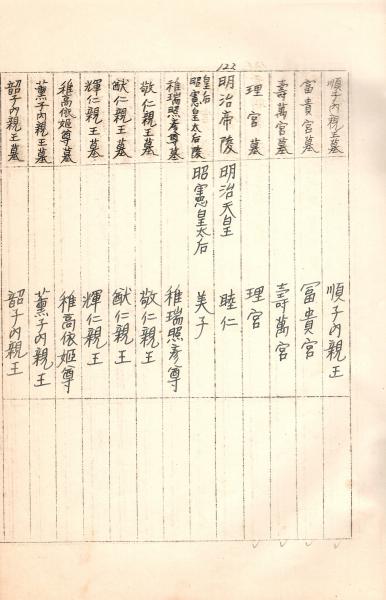 順子内親王墓 順子内親王
富貴宮墓 富貴宮
壽萬宮墓 壽萬宮
理宮墓 理宮
122
明治帝陵 明治天皇 睦仁
皇后
昭憲皇太后陵 昭憲皇太后 美子
稚瑞照彦尊墓 稚瑞照彦尊
敬仁親王墓 敬仁親王
猷仁親王墓 猷仁親王
輝仁親王墓 輝仁親王
稚高依姫尊墓 稚高依姫尊
薫子内親王墓 薫子内親王
韶子内親王墓 韶子内親王